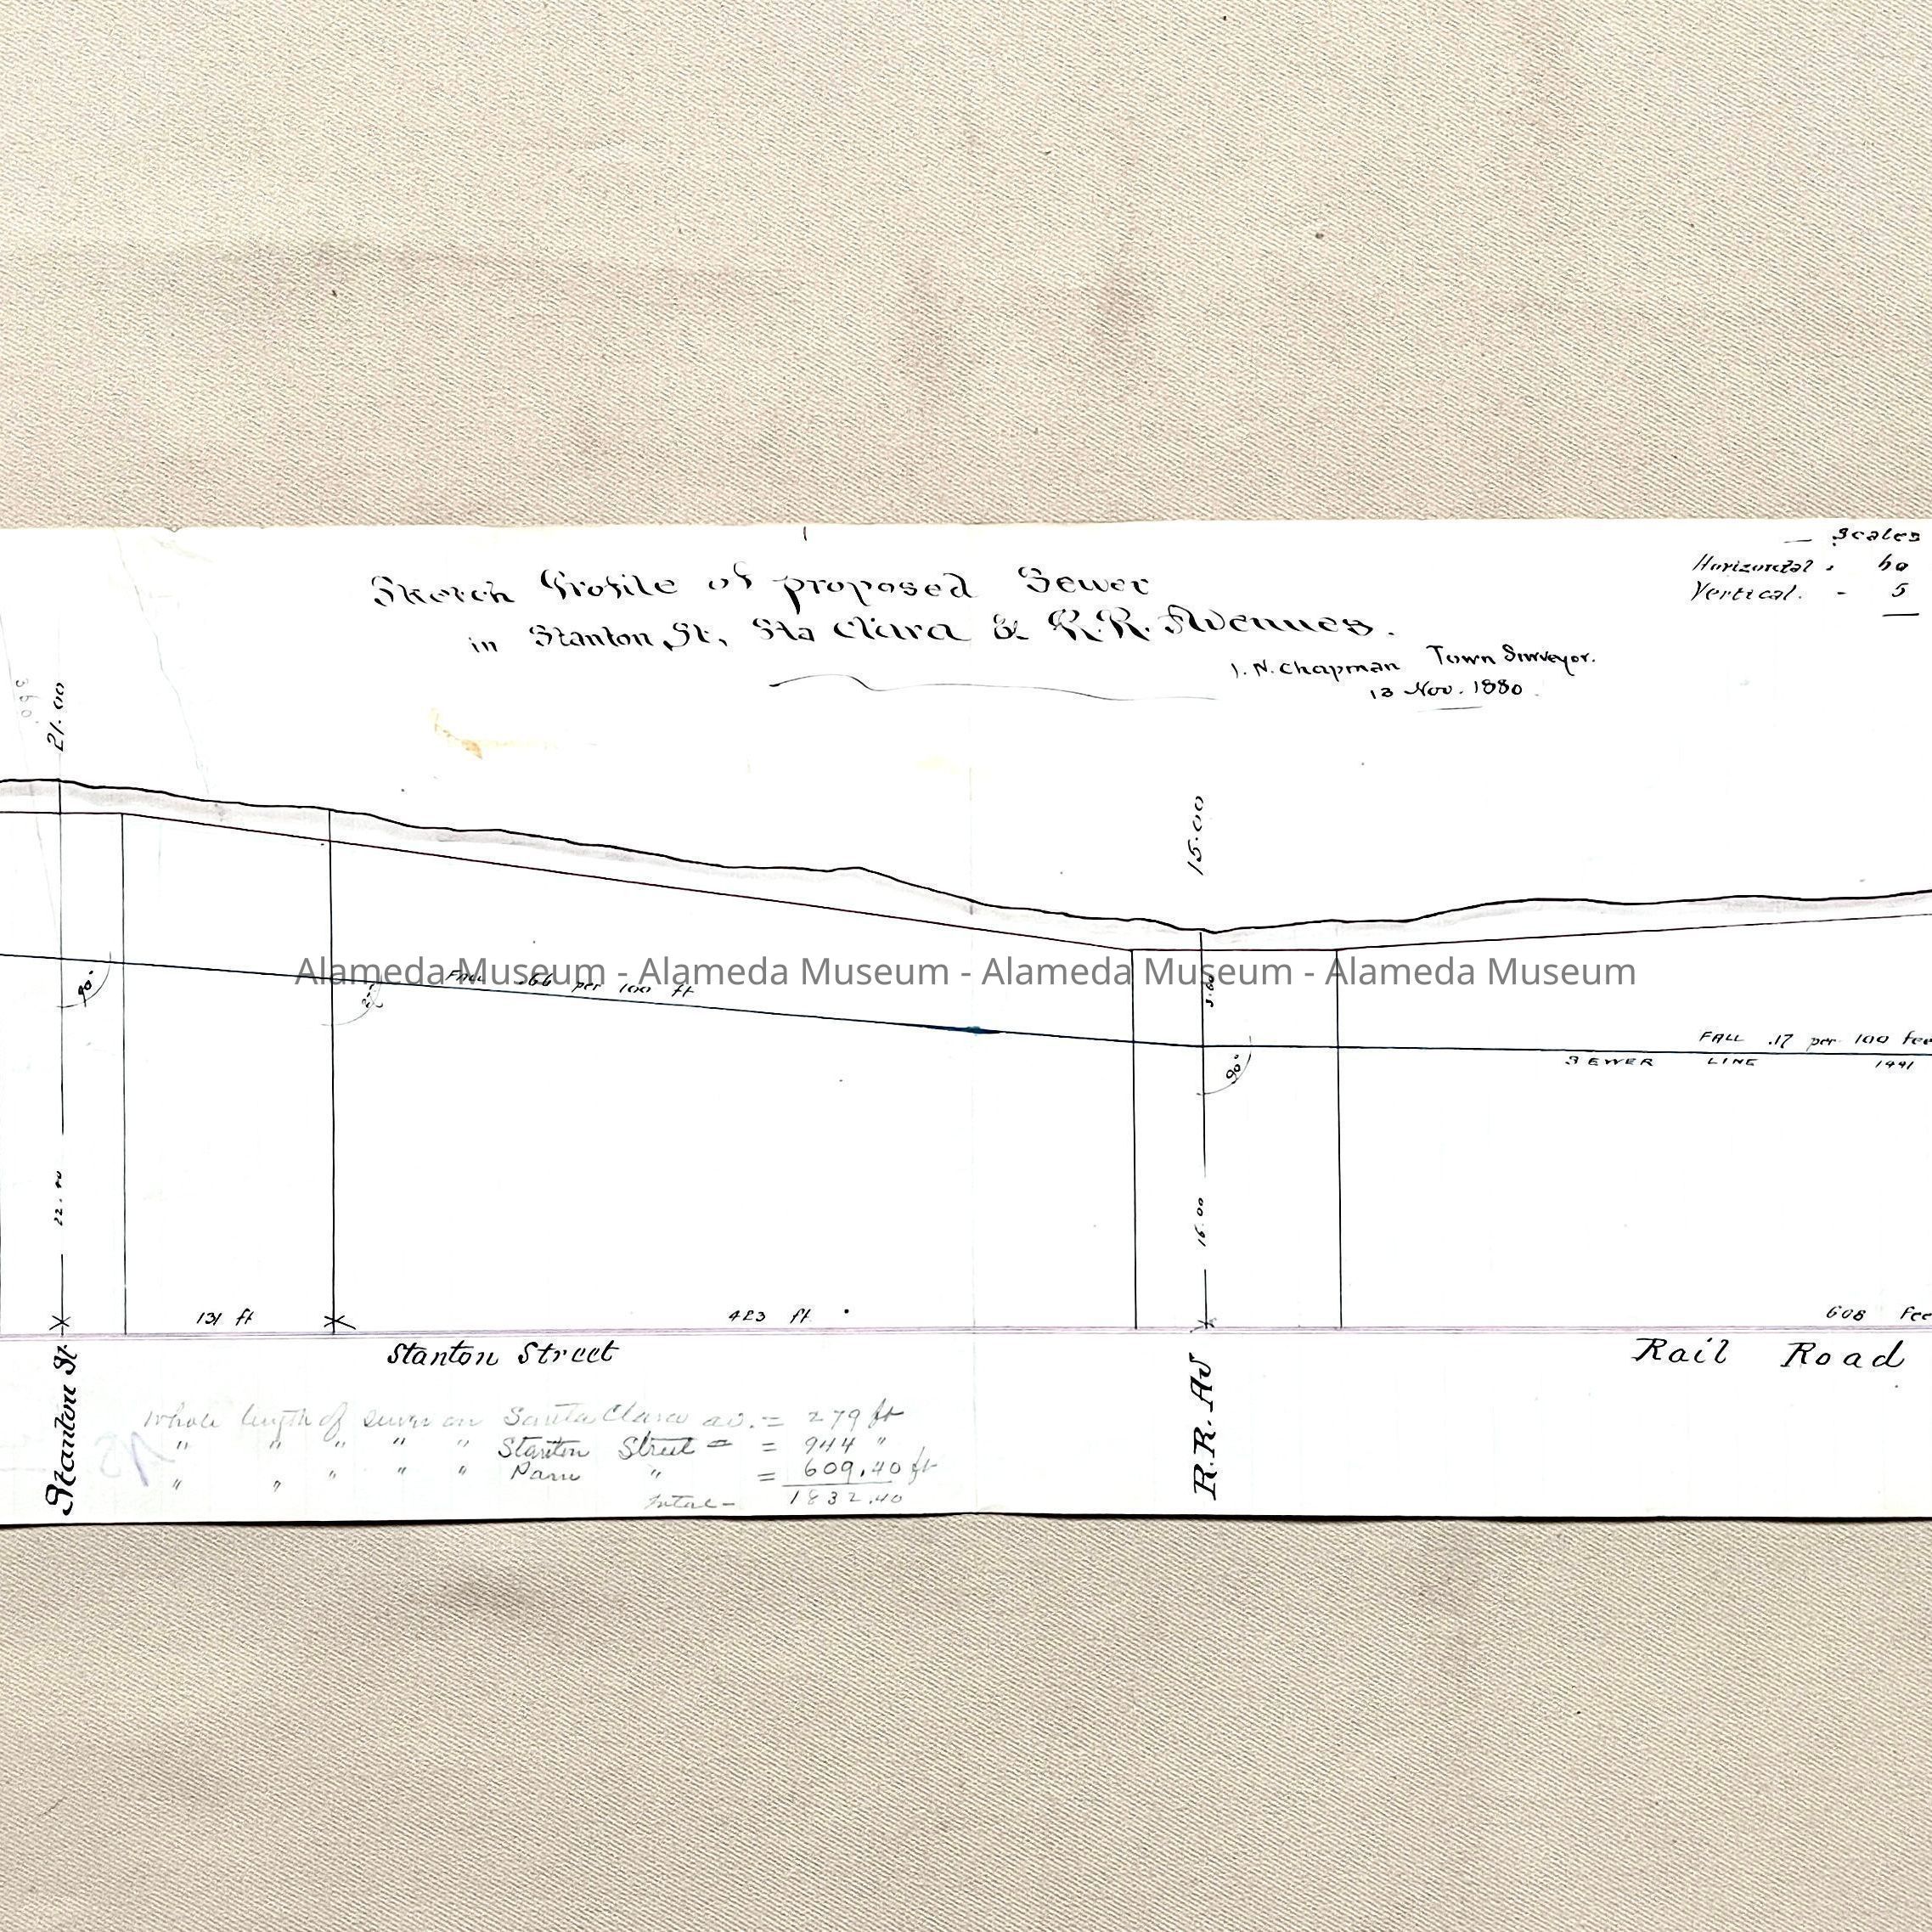 Scales
Horizontal . 60
Vertical. - 5
Sketch Profile of proposed Sewer
in Stanton St, Sta Clara & R.R. Avenues.
I. N. Chapman Town Surveyor.
13 Nov. 1880.
360
21.00
15.00
90°
Alameda Museum - Alameda Museum - Alameda Museum - Alameda Museum
FALL .66 per 100 ft
90°
FALL .17 per 100 Fee
SEWER LINE 1441
16.00
131 ft
423 ft.
608 Fee
Stanton Street
Rail Road
Stanton St
R.R. Av
Whole length of sewer on Santa Clara av. = 279 ft
" " " " " Stanton Street = = 944 "
" " " " " Paru " = 609.40 ft
Total - 1832.40